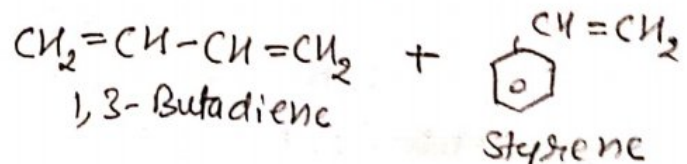 CH₂=CH-CH=CH₂ + CH=CH₂
1,3-Butadiene
Styrene